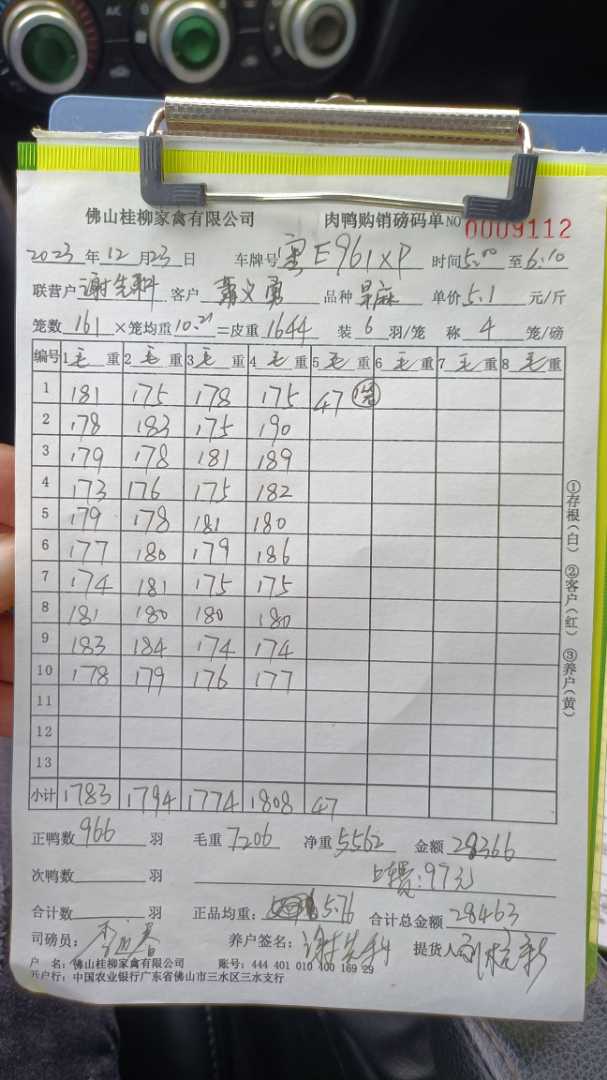 佛山桂柳家禽有限公司 肉鸭购销磅码单 NO 0009112
2023 年 12 月 23 日 车牌号 粤E961XP 时间 5:00 至 6:10
联营户 谢先科 客户 义勇 品种 旱麻 单价 5.1 元/斤
笼数 161 ×笼均重 10.21 =皮重 1644 装 6 羽/笼 称 4 笼/磅
编号 1 毛 重 2 毛 重 3 毛 重 4 毛 重 5 毛 重 6 毛 重 7 毛 重 8 毛 重
1 181 175 178 175 47
2 178 183 175 190
3 179 178 181 189
4 173 176 175 182
5 179 178 181 180
6 177 180 179 186
7 174 181 175 175
8 181 180 180 180
9 183 184 174 174
10 178 179 176 177
11
12
13
小计 1783 1794 1774 1808 47
正鸭数 966 羽 毛重 7206 净重 5562 金额 28366
次鸭数 羽 费:97元
合计数 羽 正品均重: 5.76 合计总金额 28463
司磅员: 养户签名: 谢先科 提货人
户 名:佛山桂柳家禽有限公司 账号:444 401 010 400 169 29
开户行:中国农业银行广东省佛山市三水区三水支行
①存根(白) ②客户(红) ③养户(黄)